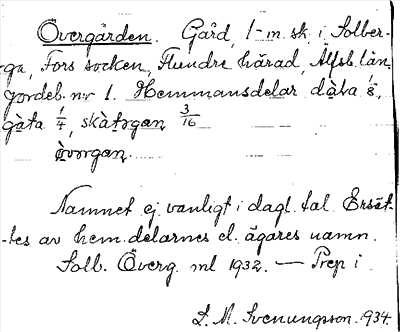 Övergården. Gård, 1-m. sk. i Solber-
ga, Fors socken, Flundre härad, Älfsb. län,
jordeb. nr 1. Hemmansdelar dàta 1/8,
gàta 1/4, skàtrgan 3/16
òvorgan.
Namnet ej vanligt i dagl. tal Ersät-
-tes av hem.delarnes el. ägares namn.
Solb. Överg. ml 1932. — Prep i
S. M. Svenungson. 1934.